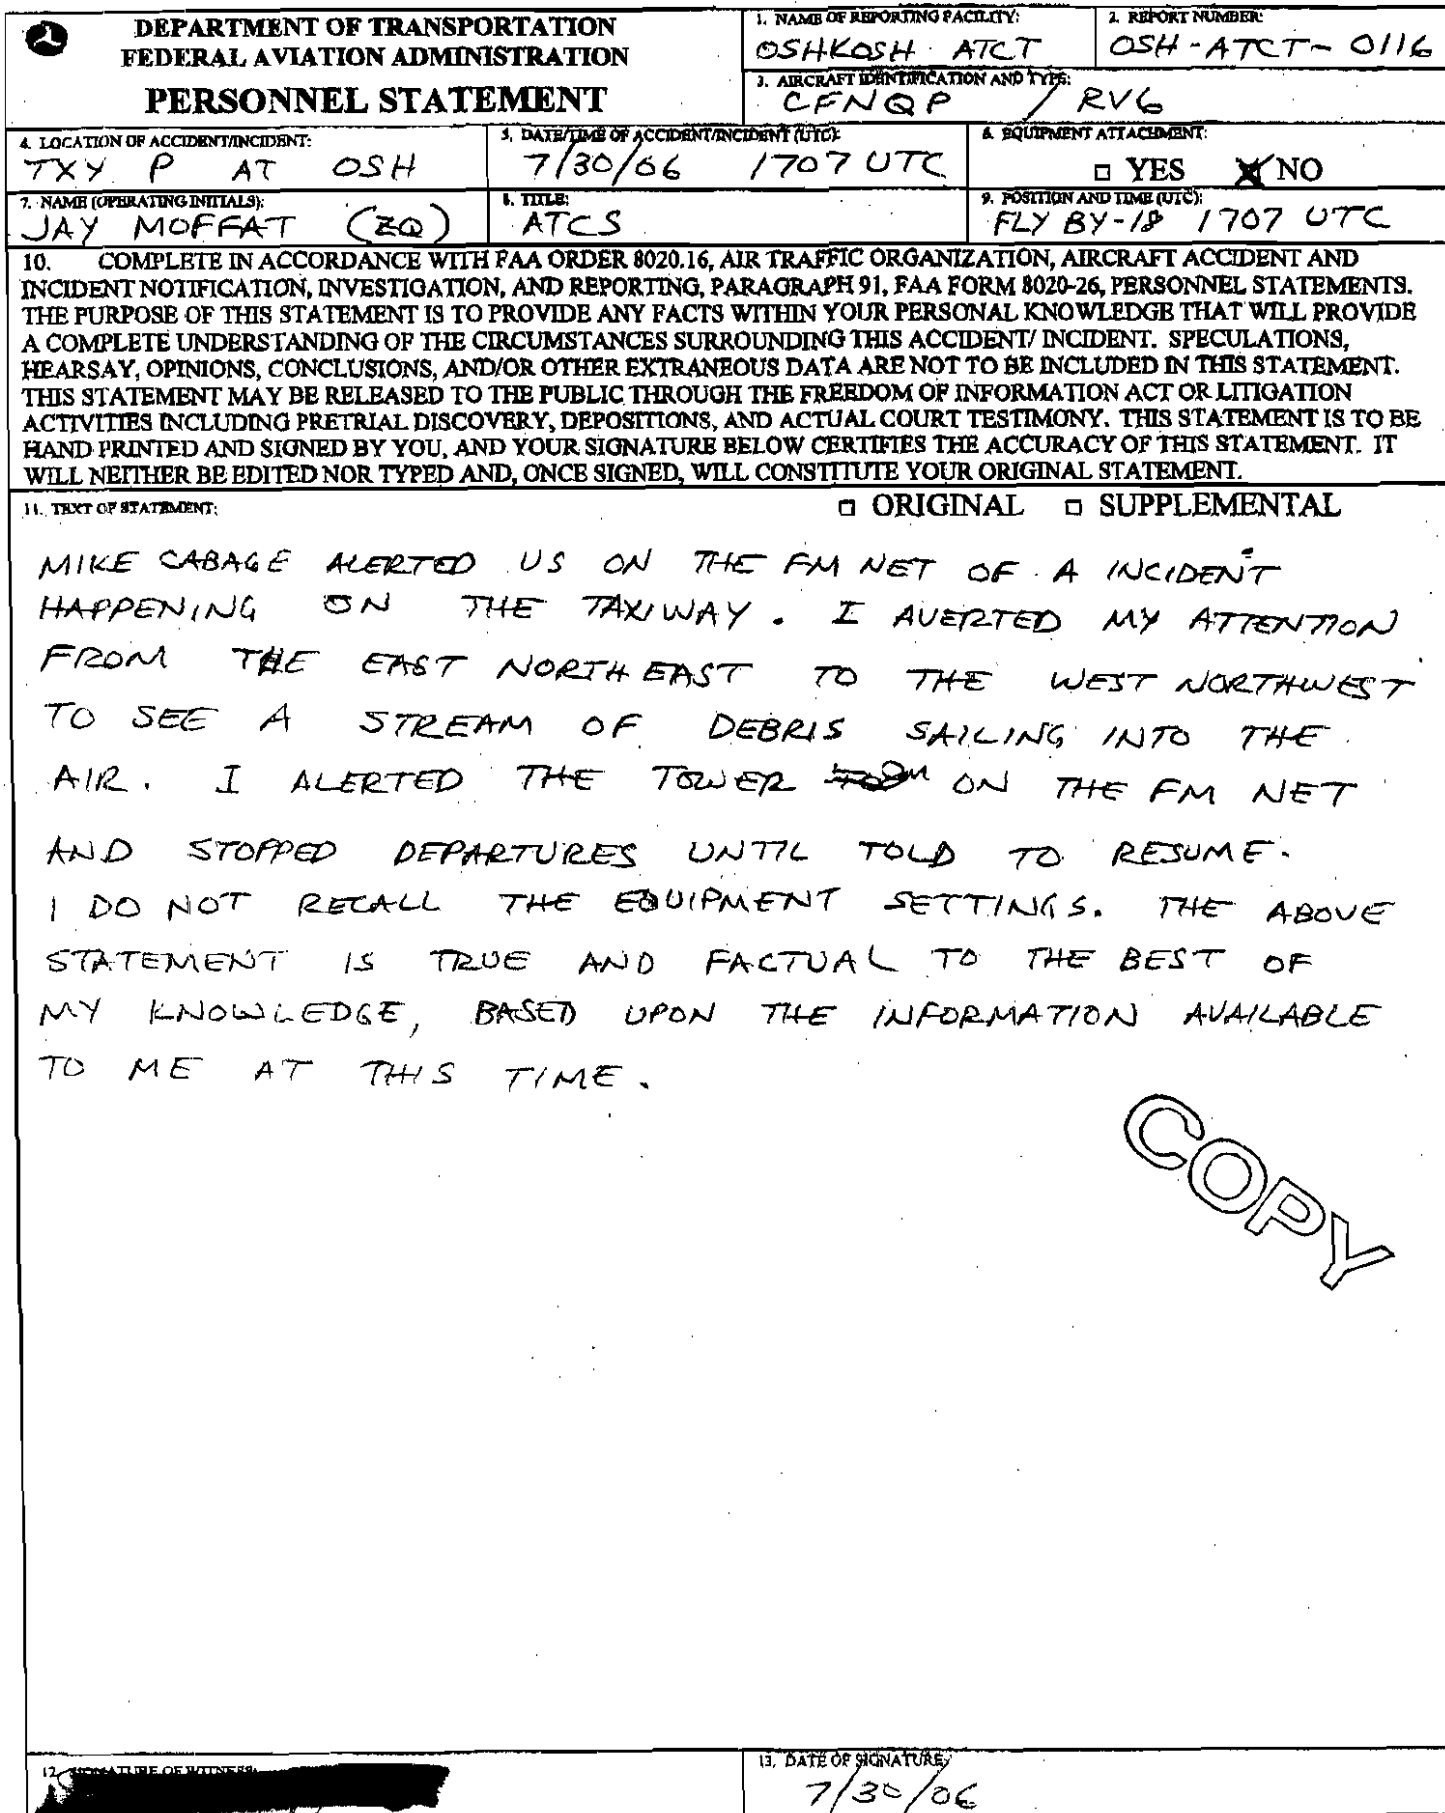 DEPARTMENT OF TRANSPORTATION
FEDERAL AVIATION ADMINISTRATION
PERSONNEL STATEMENT
1. NAME OF REPORTING FACILITY:
OSHKOSH ATCT
2. REPORT NUMBER:
OSH-ATCT-0116
3. AIRCRAFT IDENTIFICATION AND TYPE:
CFNQP / RV6
4. LOCATION OF ACCIDENT/INCIDENT:
TXY P AT OSH
5. DATE/TIME OF ACCIDENT/INCIDENT (UTC):
7/30/06 1707 UTC
6. EQUIPMENT ATTACHMENT:
□ YES ☒ NO
7. NAME (OPERATING INITIALS):
JAY MOFFAT (ZQ)
8. TITLE:
ATCS
9. POSITION AND TIME (UTC):
FLY BY-18 1707 UTC
10. COMPLETE IN ACCORDANCE WITH FAA ORDER 8020.16, AIR TRAFFIC ORGANIZATION, AIRCRAFT ACCIDENT AND
INCIDENT NOTIFICATION, INVESTIGATION, AND REPORTING, PARAGRAPH 91, FAA FORM 8020-26, PERSONNEL STATEMENTS.
THE PURPOSE OF THIS STATEMENT IS TO PROVIDE ANY FACTS WITHIN YOUR PERSONAL KNOWLEDGE THAT WILL PROVIDE
A COMPLETE UNDERSTANDING OF THE CIRCUMSTANCES SURROUNDING THIS ACCIDENT/ INCIDENT. SPECULATIONS,
HEARSAY, OPINIONS, CONCLUSIONS, AND/OR OTHER EXTRANEOUS DATA ARE NOT TO BE INCLUDED IN THIS STATEMENT.
THIS STATEMENT MAY BE RELEASED TO THE PUBLIC THROUGH THE FREEDOM OF INFORMATION ACT OR LITIGATION
ACTIVITIES INCLUDING PRETRIAL DISCOVERY, DEPOSITIONS, AND ACTUAL COURT TESTIMONY. THIS STATEMENT IS TO BE
HAND PRINTED AND SIGNED BY YOU, AND YOUR SIGNATURE BELOW CERTIFIES THE ACCURACY OF THIS STATEMENT. IT
WILL NEITHER BE EDITED NOR TYPED AND, ONCE SIGNED, WILL CONSTITUTE YOUR ORIGINAL STATEMENT.
11. TEXT OF STATEMENT:
□ ORIGINAL □ SUPPLEMENTAL
MIKE CABAGE ALERTED US ON THE FM NET OF A INCIDENT
HAPPENING ON THE TAXIWAY. I AVERTED MY ATTENTION
FROM THE EAST NORTH EAST TO THE WEST NORTHWEST
TO SEE A STREAM OF DEBRIS SAILING INTO THE
AIR. I ALERTED THE TOWER ON THE FM NET
AND STOPPED DEPARTURES UNTIL TOLD TO RESUME.
I DO NOT RECALL THE EQUIPMENT SETTINGS. THE ABOVE
STATEMENT IS TRUE AND FACTUAL TO THE BEST OF
MY KNOWLEDGE, BASED UPON THE INFORMATION AVAILABLE
TO ME AT THIS TIME.
COPY
12. SIGNATURE OF WITNESS:
13. DATE OF SIGNATURE:
7/30/06